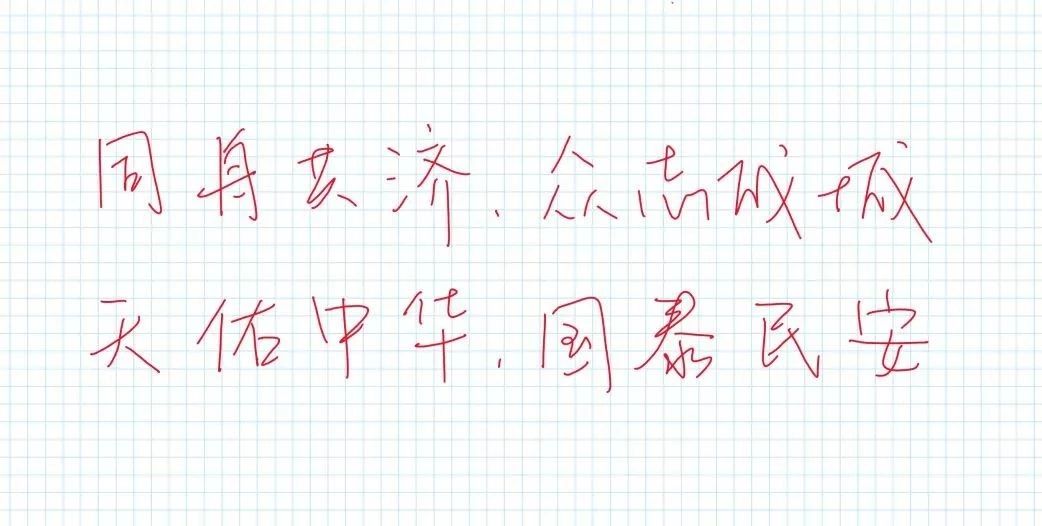 同舟共济,众志成城
天佑中华,国泰民安